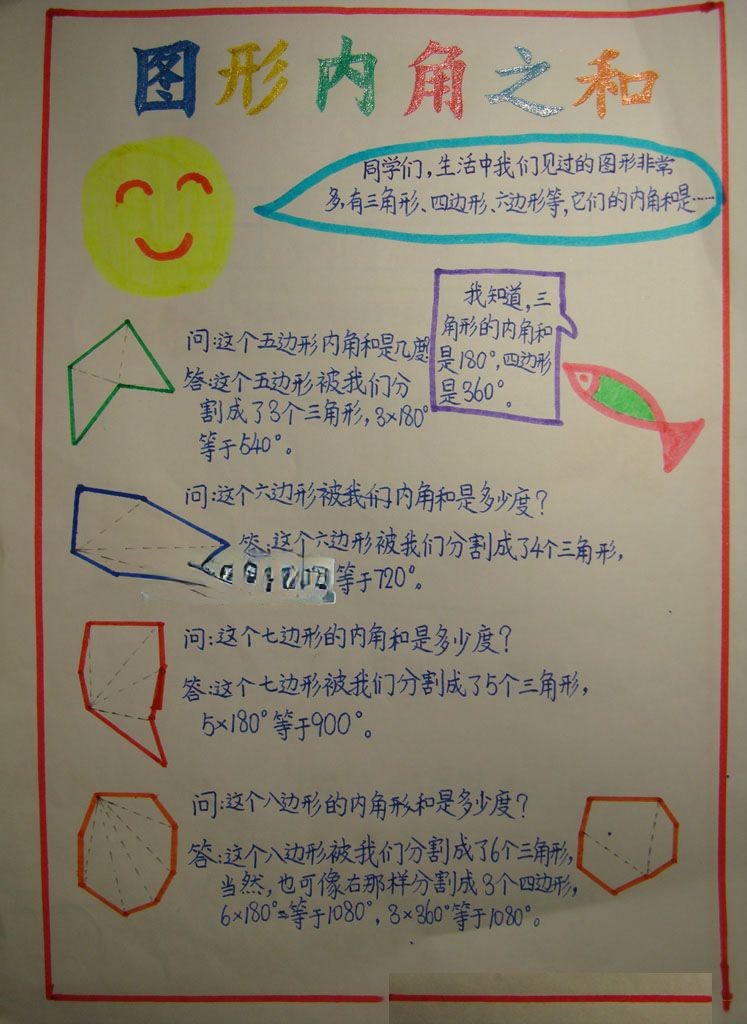 图形内角之和
同学们，生活中我们见过的图形非常
多，有三角形、四边形、六边形等，它们的内角和是……
我知道，三
角形的内角和
是180°，四边形
是360°。
问：这个五边形内角和是几度？
答：这个五边形被我们分
割成了3个三角形，3×180°
等于540°。
问：这个六边形被我们内角和是多少度？
答：这个六边形被我们分割成了4个三角形，
等于720°。
问：这个七边形的内角和是多少度？
答：这个七边形被我们分割成了5个三角形，
5×180°等于900°。
问：这个八边形的内角形和是多少度？
答：这个八边形被我们分割成了6个三角形，
当然，也可像右那样分割成3个四边形，
6×180°=等于1080°，3×360°等于1080°。